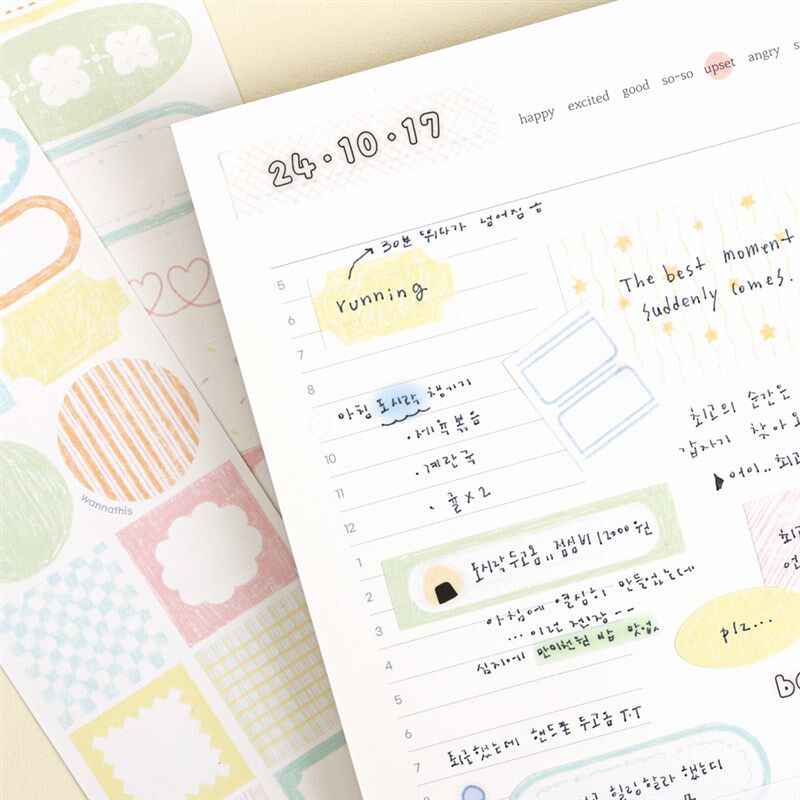 happy excited good so-so upset angry
24·10·17
30분 뛰다가 넘어짐
5
running
6
7
The best moment
suddenly comes.
8
아침 도시락 챙기기
·제육볶음
10
·계란국
11
·귤 x 2
12
최고의 순간은
갑자기 찾아
어이.. 최고
1
도시락 두고옴,, 점심비 12000원
2
아침에 열심히 만들었는데
3
... 이런 젠장--
4
심지에 만이천원 밥 맛없
plz...
5
6
퇴근했는데 핸드폰 두고옴 T.T
7
8
힐링할라 했는디
wannathis